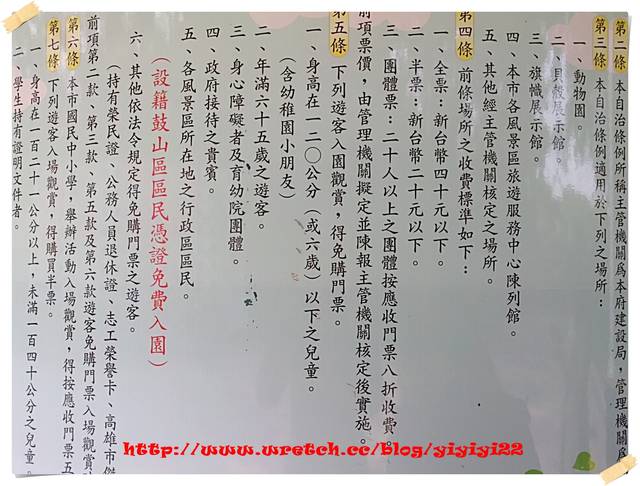 第二條 本自治條例所稱主管機關為本府建設局，管理機關為
第三條 本自治條例適用於下列之場所：
一、動物園。
二、貝殼展示館。
三、旗幟展示館。
四、本市各風景區旅遊服務中心陳列館。
五、其他經主管機關核定之場所。
第四條 前條場所之收費標準如下：
一、全票：新台幣四十元以下。
二、半票：新台幣二十元以下。
三、團體票：二十人以上之團體按應收門票八折收費。
前項票價，由管理機關擬定並陳報主管機關核定後實施。
第五條 下列遊客入園觀賞，得免購門票。
一、身高在一二〇公分（或六歲）以下之兒童。
（含幼稚園小朋友）
二、年滿六十五歲之遊客。
三、身心障礙者及育幼院團體。
四、政府接待之貴賓。
五、各風景區所在地之行政區區民。
（設籍鼓山區區民憑證免費入園）
六、其他依法令規定得免購門票之遊客。
（持有榮民證、公務人員退休證、志工榮譽卡、高雄市傑
前項第二款、第三款、第五款及第六款遊客免購門票入場觀賞
第六條 本市國民中小學，舉辦活動入場觀賞，得按應收門票五
第七條 下列遊客入場觀賞，得購買半票。
一、身高在一百二十一公分以上，未滿一百四十公分之兒童。
二、學生持有證明文件者。
http://www.wretch.cc/blog/yiyiyi22